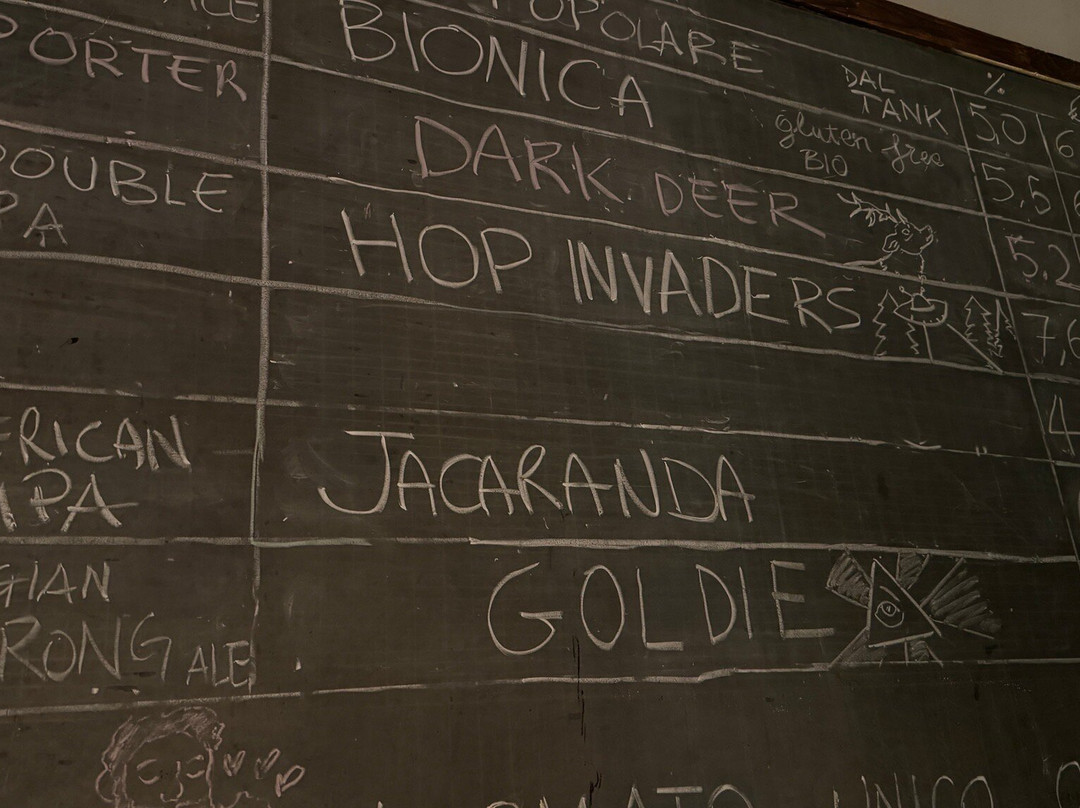 POPOLARE DAL TANK % 5,0 6
BIONICA gluten free BIO 5,6
PORTER DARK DEER 5.2
DOUBLE HOP INVADERS 7,6
PA
4
ERICAN JACARANDA
IPA
GIAN GOLDIE
RONG ALE
UNICO